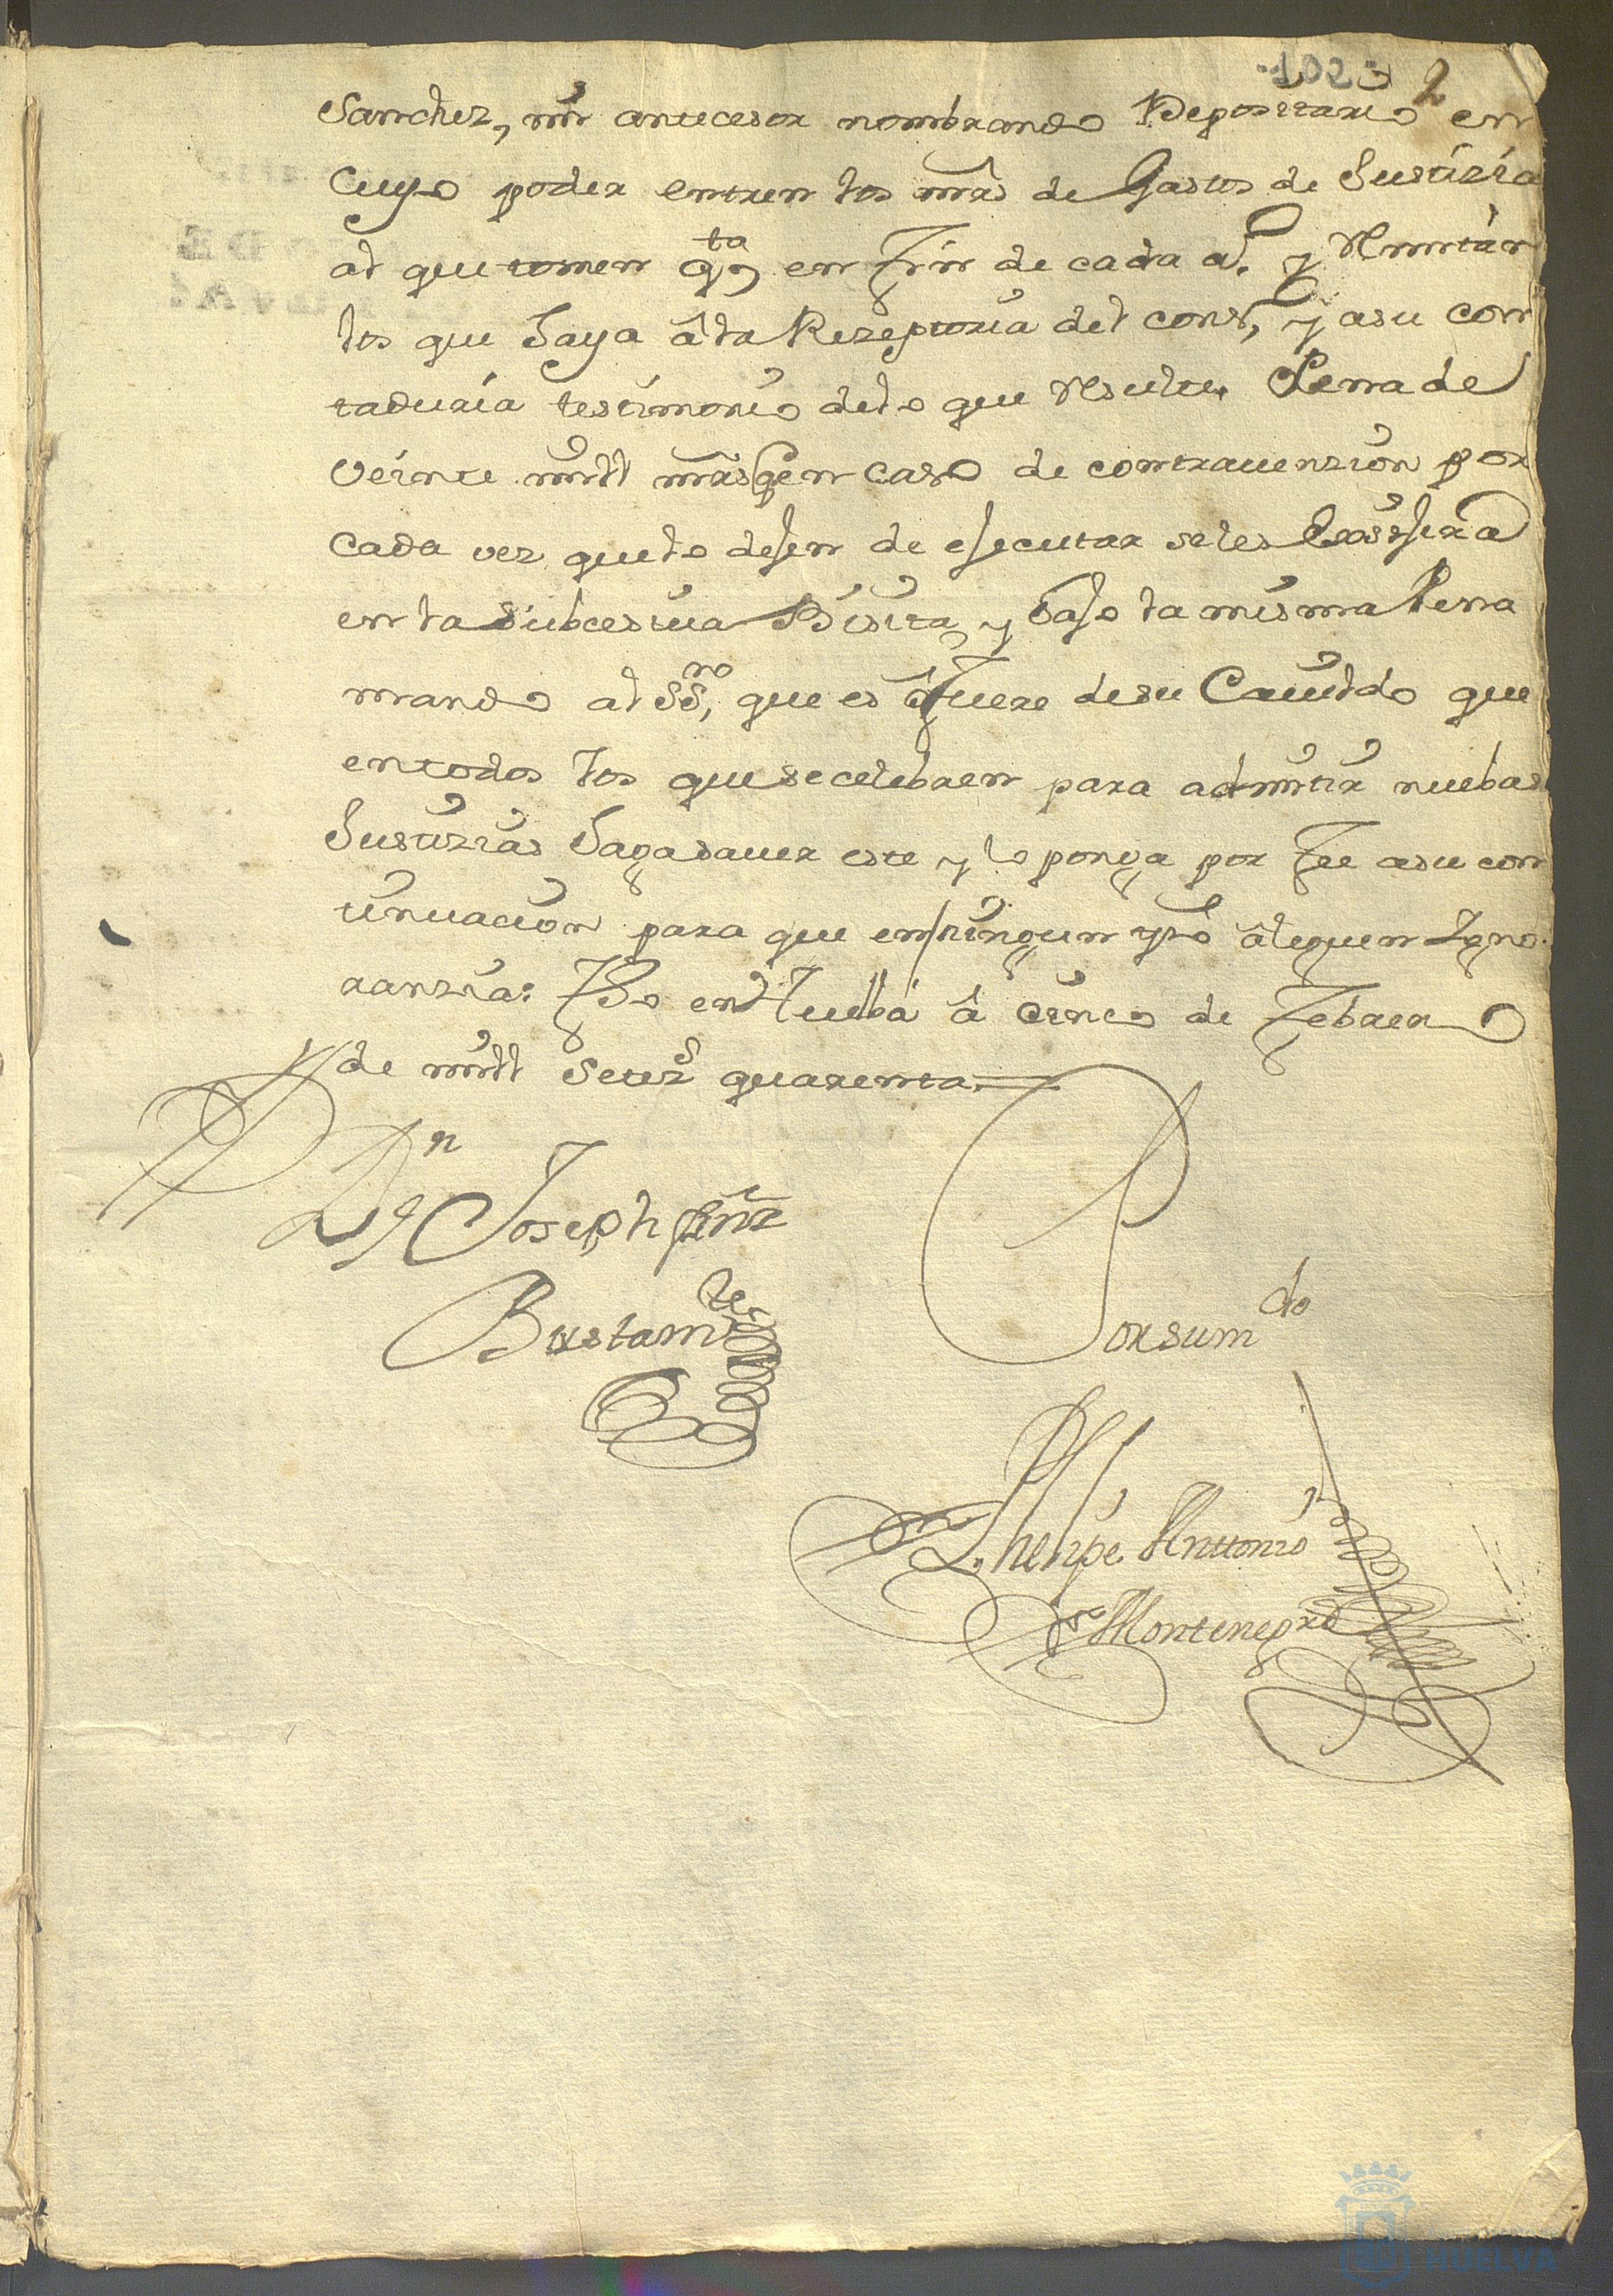 102 2
Sanchez, mi antecesor nombrando Depositario en
cuyo poder entren los mrs de Gastos de Justizia
al que tomen qta en fin de cada a.o y Remitan
los que haya â la Rezeptoria del cons.o, y a su con
taduria testimonio de lo que resulte. Pena de
veinte mill mrs q en caso de contravenzion por
cada vez que lo dejen de ejecutar se les exsijira
en la subcesiva Bisita, y bajo la misma Pena
mando al SS.no, que es ô fuere de su Cavildo que
en todos los que se celebren para admitir nuebas
Justizias haga saver este y lo ponga por fee a su con
tinuacion para que en ningun tpo âleguen Igno
ranzia: Fho en Huelba â cinco de Febrero
de mill setez.s quarenta.
Dn Joseph frnz
Bustamte
Por su mdo
Phelipe Anttonio
Montenegro
HUELVA